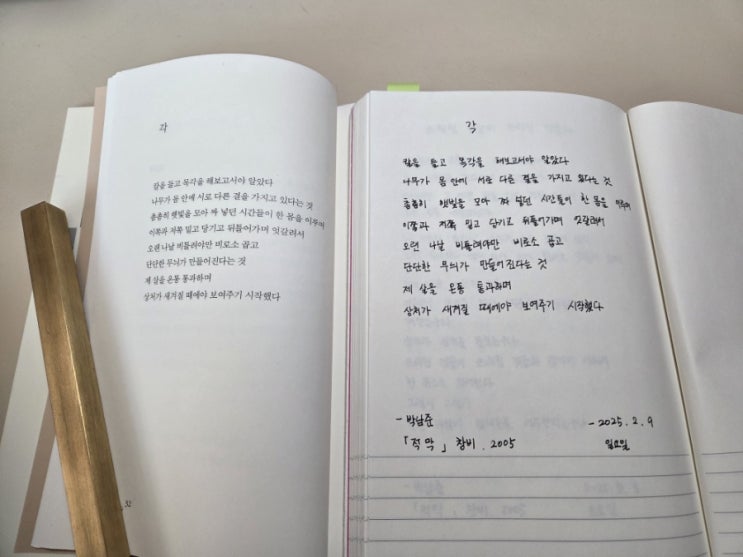 각
칼을 들고 목각을 해보고서야 알았다
나무가 몸 안에 서로 다른 결을 가지고 있다는 것
촘촘히 햇빛을 모아 짜 넣던 시간들이 한 몸을 이루며
이쪽과 저쪽 밀고 당기고 뒤틀어가며 엇갈려서
오랜 나날 비틀려야만 비로소 곱고
단단한 무늬가 만들어진다는 것
제 살을 온통 통과하며
상처가 새겨질 때에야 보여주기 시작했다
32
각
칼을 들고 목각을 해보고서야 알았다
나무가 몸 안에 서로 다른 결을 가지고 있다는 것
촘촘히 햇빛을 모아 짜 넣던 시간들이 한 몸을 이루며
이쪽과 저쪽 밀고 당기고 뒤틀어가며 엇갈려서
오랜 나날 비틀려야만 비로소 곱고
단단한 무늬가 만들어진다는 것
제 살을 온통 통과하며
상처가 새겨질 때에야 보여주기 시작했다
- 박남준 - 2025. 2. 9
「적막」 창비. 2005 일요일